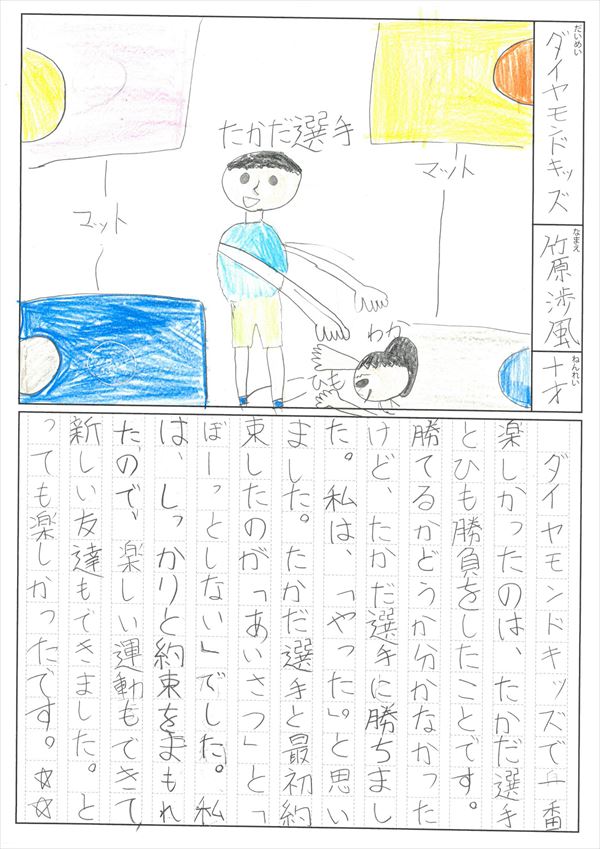 だいめい
ダイヤモンドキッズ
なまえ
竹原渉風
ねんれい
十才
たかだ選手
マット
マット
わか
ひも
ダイヤモンドキッズで一番
楽しかったのは、たかだ選手
とひも勝負をしたことです。
勝てるかどうか分かなかった
けど、たかだ選手に勝ちまし
た。私は、「やった。」と思い
ました。たかだ選手と最初約
束したのが「あいさつ」と「
ぼーっとしない」でした。私
は、しっかりと約束をまもれ
たので、楽しい運動もできて、
新しい友達もできました。と
っても楽しかったです。☆☆